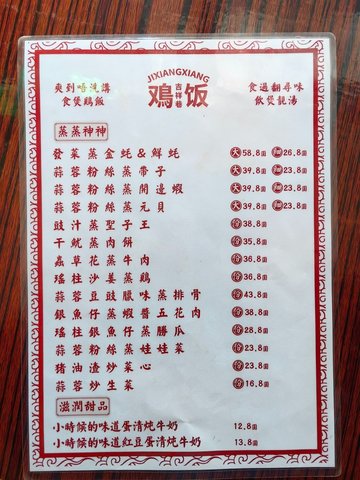 爽到唔洗講
食煲鷄飯
JIXIANGXIANG
鷄吉祥巷饭
食過翻尋味
飲煲靚湯
蒸蒸神神
發菜蒸金蚝&鮮蚝 大58.8圓 細26.8圓
蒜蓉粉絲蒸帶子 大39.8圓 細23.8圓
蒜蓉粉絲蒸開邊蝦 大39.8圓 細23.8圓
蒜蓉粉絲蒸元貝 大39.8圓 細23.8圓
豉汁蒸聖子王 38.8圓
干魷蒸肉餅 35.8圓
蟲草花蒸牛肉 36.8圓
瑤柱沙姜蒸鷄 36.8圓
蒜蓉豆豉臘味蒸排骨 43.8圓
銀魚仔蒸蝦醬五花肉 38.8圓
瑤柱銀魚仔蒸勝瓜 28.8圓
蒜蓉粉絲蒸娃娃菜 23.8圓
豬油渣炒菜心 23.8圓
蒜蓉炒生菜 16.8圓
滋潤甜品
小時候的味道蛋清炖牛奶 12.8圓
小時候的味道紅豆蛋清炖牛奶 13.8圓